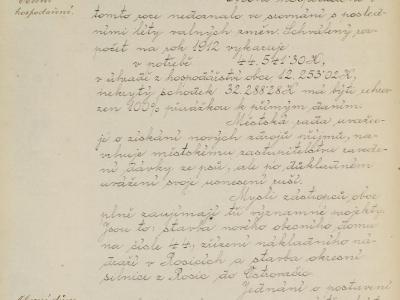 hospodaření.
tomto roce nedoznalo ve srovnání s posled-
ními léty valných změn. Schválený roz-
počet na rok 1912 vykazuje
v potřebě 44.541·30 K,
v úhradě z hospodářství obce 12.253·02 K,
nekrytý schodek 32.288·28 K má být uhra-
zen 400% přirážkou k přímým daním.
Městská rada uvažu-
je o získání nových zdrojů příjmů, na-
vrhuje městskému zastupitelstvu zavede-
ní dávky ze psů, ale po důkladném
uvážení svoje usnesení ruší.
Mysli zástupců obce
plně zaujímají tři významné projekty.
Jsou to: stavba nového obecního domu
na čísle 44, zřízení nákladního ná-
draží v Rosicích a stavba okresní
silnice z Rosic do Ostrovačic.
Jednání o postavení